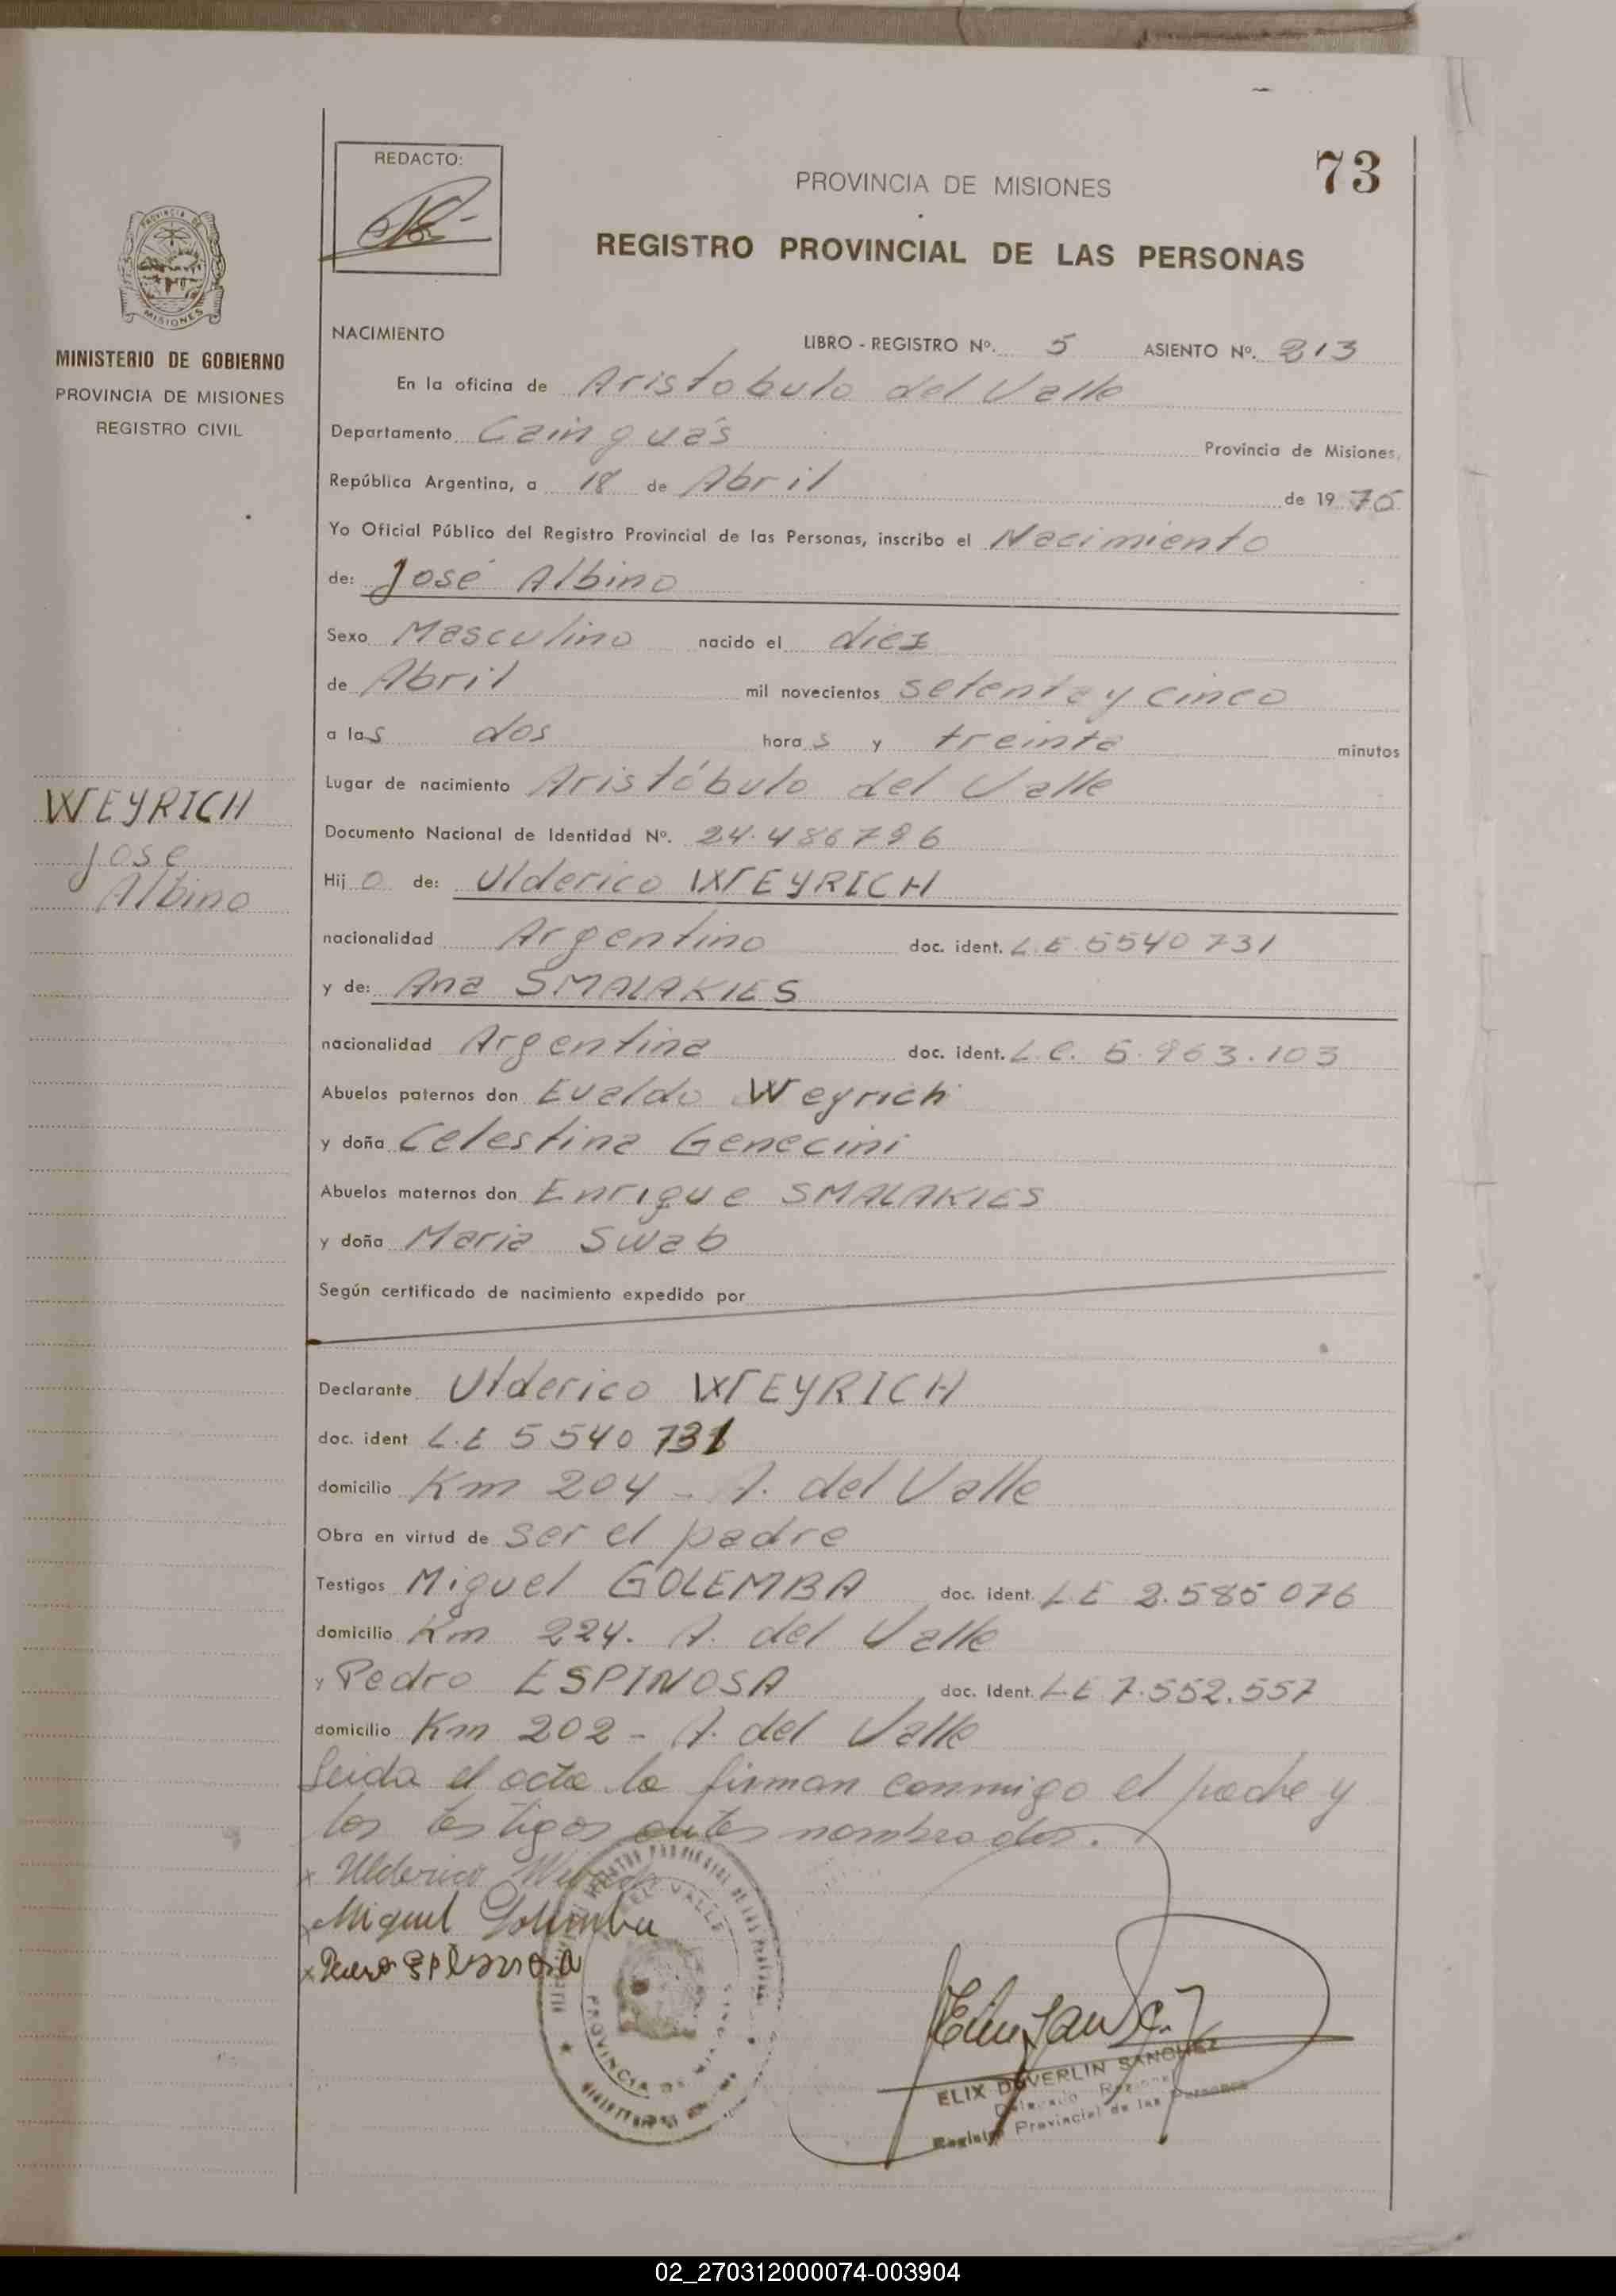 REDACTO:
73
PROVINCIA DE MISIONES
REGISTRO PROVINCIAL DE LAS PERSONAS
PROVINCIA DE
MISIONES
MINISTERIO DE GOBIERNO
PROVINCIA DE MISIONES
REGISTRO CIVIL
WEYRICH
José
Albino
NACIMIENTO LIBRO - REGISTRO Nº. 5 ASIENTO Nº. 213
En la oficina de Aristobulo del Valle
Departamento Cainguás Provincia de Misiones,
República Argentina, a 18 de Abril de 1975
Yo Oficial Público del Registro Provincial de las Personas, inscribo el Nacimiento
de: José Albino
Sexo Masculino nacido el diez
de Abril mil novecientos setenta y cinco
a las dos horas y treinta minutos
Lugar de nacimiento Aristóbulo del Valle
Documento Nacional de Identidad Nº. 24.486796
Hijo de: Ulderico WEYRICH
nacionalidad Argentino doc. ident. L.E 5540731
y de: Ana SMALAKIES
nacionalidad Argentina doc. ident. L.C. 5.963.103
Abuelos paternos don Evaldo Weyrich
y doña Celestina Genecini
Abuelos maternos don Enrique SMALAKIES
y doña Maria Swab
Según certificado de nacimiento expedido por
Declarante Ulderico WEYRICH
doc. ident L.E 5540731
domicilio Km 204 - A. del Valle
Obra en virtud de ser el padre
Testigos Miguel GOLEMBA doc. ident. L E 2.585076
domicilio Km 224. A. del Valle
y Pedro ESPINOSA doc. Ident. L.E 7.552.557
domicilio Km 202 - A. del Valle
Leida el acta la firman conmigo el padre y
los testigos antes nombrados.
x Ulderico
x Miguel Golemba
x Espinosa
ELIX DUVERLIN SANCHEZ
Delegado Regional
Registro Provincial de las Personas
02_270312000074-003904